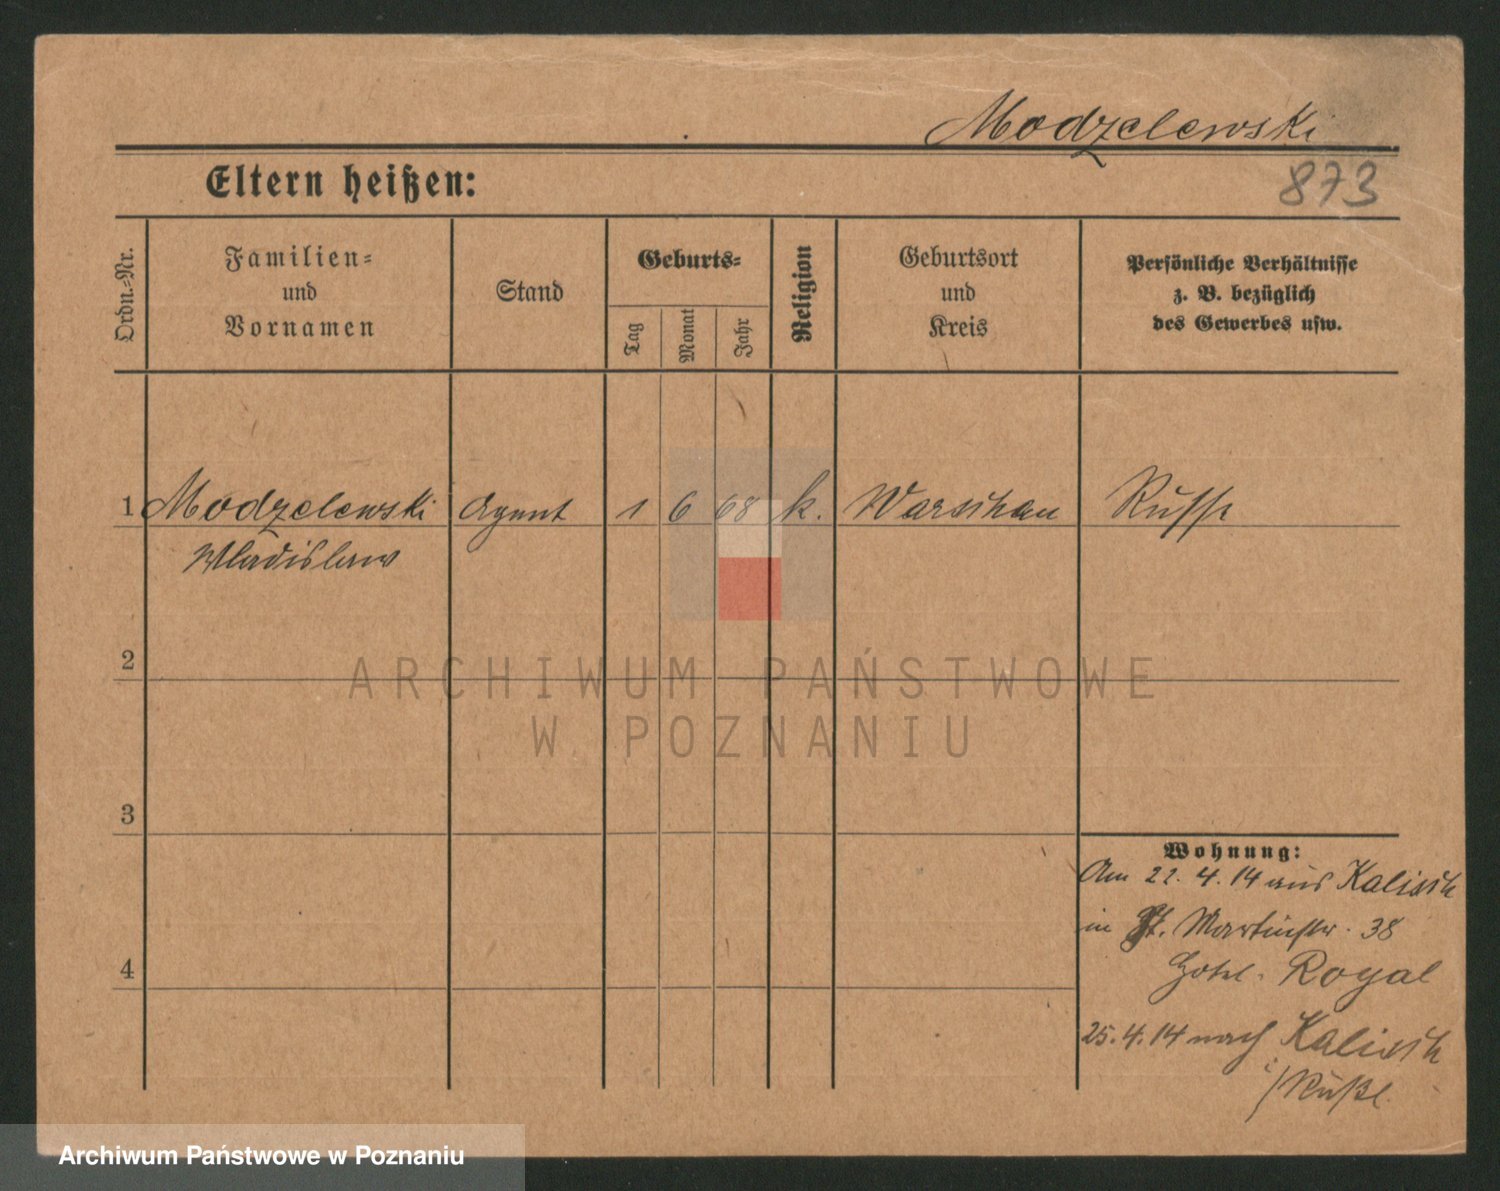 Modzelewski
Eltern heißen:
873
Ordn.-Nr.
Familien-
und
Vornamen
Stand
Geburts-
Tag
Monat
Jahr
Religion
Geburtsort
und
Kreis
Persönliche Verhältnisse
z. B. bezüglich
des Gewerbes usw.
1 Modzelewski Agent 1 6 68 k. Warschau Russe
Wladislaw
2
ARCHIWUM PAŃSTWOWE
W POZNANIU
3
Wohnung:
Am 22. 4. 14 aus Kalisch
in St. Martinstr. 38
Hotel Royal
4
25. 4. 14 nach Kalisch
i/Rußl.
Archiwum Państwowe w Poznaniu